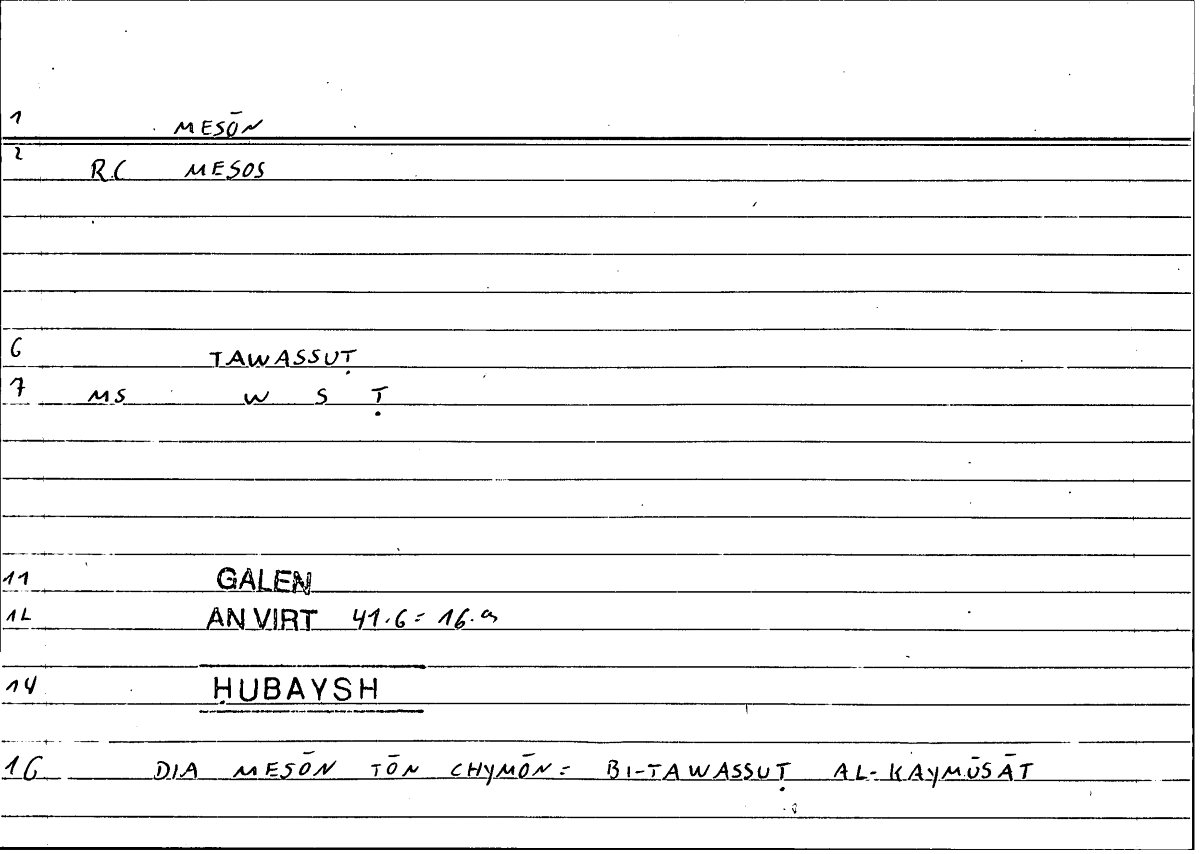 1 MESŌN
2 RC MESOS
6 TAWASSUṬ
7 MS W S Ṭ
11 GALEN
12 AN VIRT 41.6 = 16.9
14 ḤUBAYSH
16 DIA MESŌN TŌN CHYMŌN = BI-TAWASSUṬ AL-KAYMŪSĀT